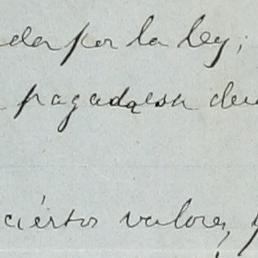 da por la ley;
pagada esa deu
ciertos valores,